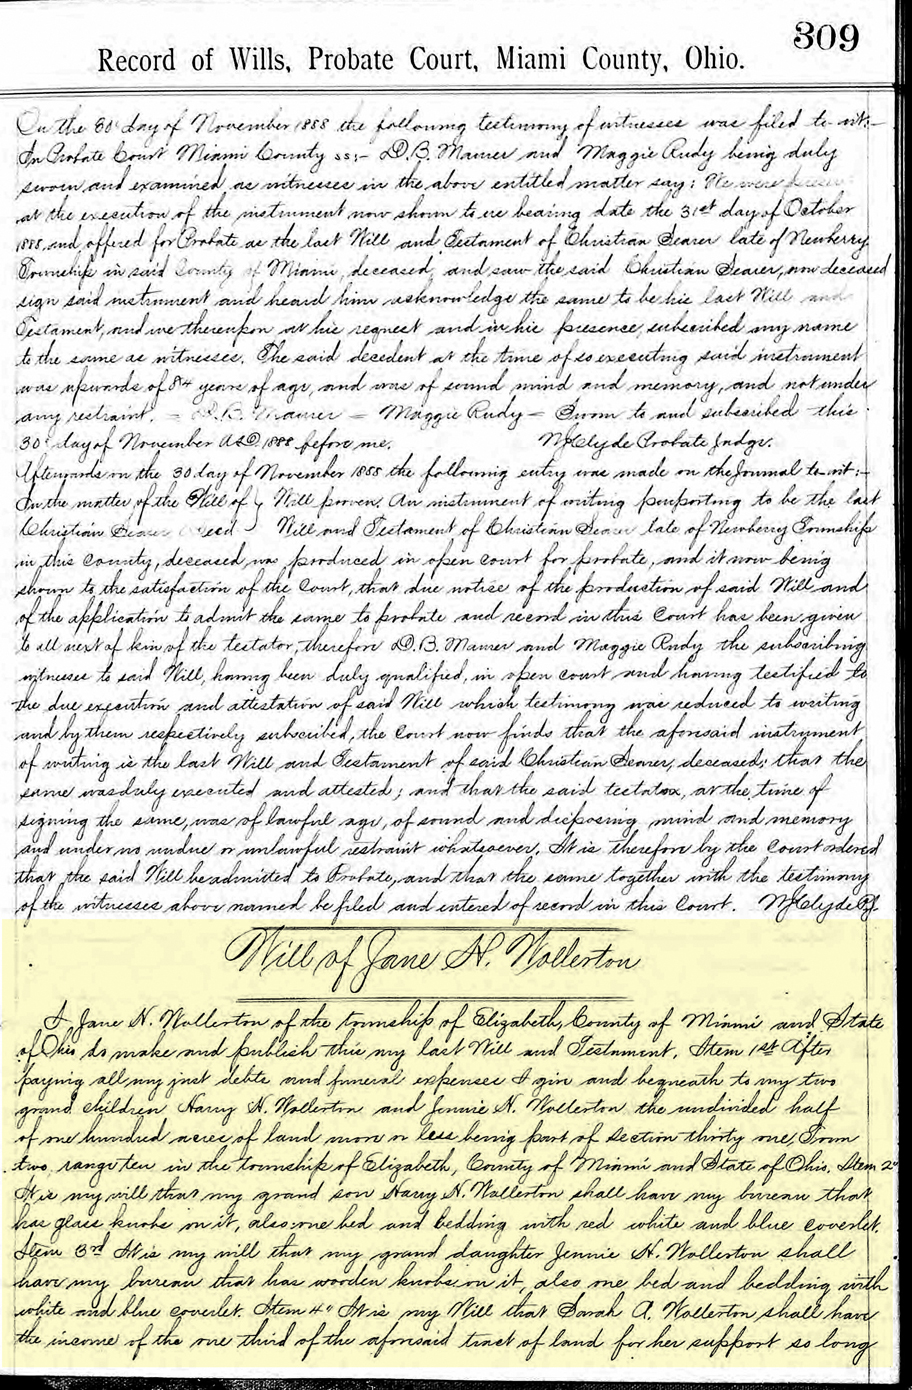 309
Record of Wills, Probate Court, Miami County, Ohio.
On the 30" day of November 1888 the following testimony of witnesses was filed to-wit:-
In Probate Court Miami County ss:- D.B. Maurer and Maggie Rudy being duly
sworn and examined, as witnesses in the above entitled matter say: We were present
at the execution of the instrument now shown to us bearing date the 31st day of October
1888 and offered for Probate as the last Will and Testament of Christian Searer late of Newberry
Township in said County of Miami, deceased, and saw the said Christian Searer, now deceased
sign said instrument and heard him acknowledge the same to be his last Will and
Testament, and we thereupon at his request and in his presence, subscribed my name
to the same as witnesses. The said decedent at the time of so executing said instrument
was upwards of 84 years of age, and was of sound mind and memory, and not under
any restraint. = D.B. Maurer = Maggie Rudy = Sworn to and subscribed this
30" day of November A.D. 1888 before me. W.J. Clyde Probate Judge.
Afterwards on the 30 day of November 1888 the following entry was made on the Journal to-wit:-
In the matter of the Will of } Will proven. An instrument of writing purporting to be the last
Christian Searer Decd } Will and Testament of Christian Searer late of Newberry Township
in this County, deceased was produced in open court for probate, and it now being
shown to the satisfaction of the Court, that due notice of the production of said Will and
of the application to admit the same to probate and record in this Court has been given
to all next of kin of the testator, therefore D.B. Maurer and Maggie Rudy the subscribing
witnesses to said Will, having been duly qualified, in open court and having testified to
the due execution and attestation of said Will which testimony was reduced to writing
and by them respectively subscribed, the Court now finds that the aforesaid instrument
of writing is the last Will and Testament of said Christian Searer, deceased; that the
same was duly executed and attested; and that the said testator, at the time of
signing the same, was of lawful age, of sound and disposing mind and memory
and under no undue or unlawful restraint whatsoever. It is therefore by the Court ordered
that the said Will be admitted to Probate, and that the same together with the testimony
of the witnesses above named be filed and entered of record in this Court. W.J. Clyde P.J.
Will of Jane N. Wollerton
I, Jane N. Wollerton of the township of Elizabeth, County of Miami and State
of Ohio do make and publish this my last Will and Testament. Item 1st After
paying all my just debts and funeral expenses I give and bequeath to my two
grand children Harry N. Wollerton and Jennie N. Wollerton the undivided half
of one hundred acres of land more or less being part of section thirty one, Town
two, range ten in the township of Elizabeth, County of Miami and State of Ohio. Item 2"
It is my will that my grand son Harry N. Wollerton shall have my bureau that
has glass knobs on it, also one bed and bedding with red white and blue coverlet.
Item 3rd It is my will that my grand daughter Jennie N. Wollerton shall
have my bureau that has wooden knobs on it, also one bed and bedding with
white and blue coverlet. Item 4" It is my Will that Sarah A. Wollerton shall have
the income of the one third of the aforesaid tract of land for her support so long